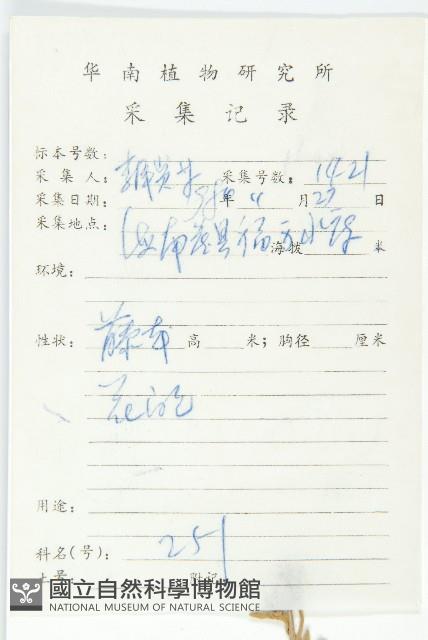 华南植物研究所
采集记录
标本号数:
采集人: 采集号数: 1421
采集日期: 年 11 月 27 日
采集地点: 海南
海拔 米
环境:
性状: 藤本 高 米; 胸径 厘米
花白色
用途:
科名(号): 251
土名: 附记
國立自然科學博物館
NATIONAL MUSEUM OF NATURAL SCIENCE